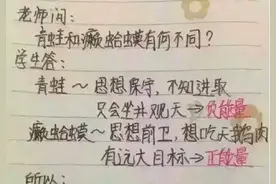 老师问：
青蛙和癞蛤蟆有何不同？
学生答：
青蛙～思想保守，不知进取
只会坐井观天→负能量
癞蛤蟆～思想前卫，想吃天鹅肉
有远大目标→正能量
所以：